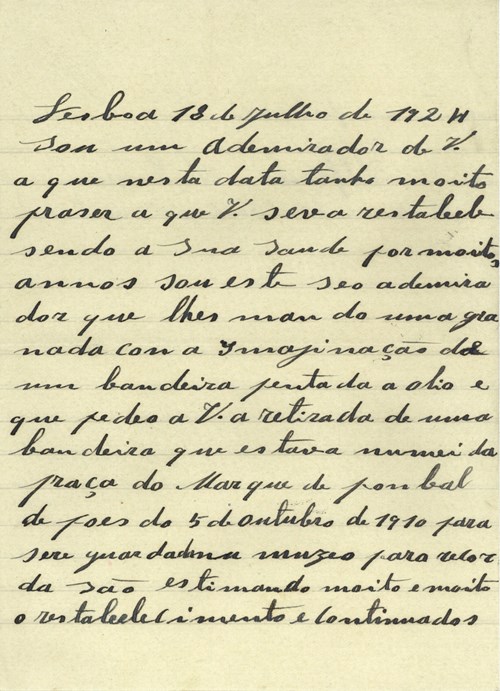 Lesboa 13 de Julho de 1924
Sou um Ademirador de V.
a que nesta data tanho moito
praser a que V. seva restabele
sendo a Sua Saude por moitos
annos sou este seo ademira
dor que lhes man do uma gra
nada con a Imajinação de
um bandeira pentada a olio e
que pedeo a V. a retirada de uma
bandeira que estava numei da
praça do Marque de ponbal
de poes do 5 de outubro de 1910 para
sere guardada nu muzeo para recor
da são estimando moito e moito
o restabelecimento e Continuados